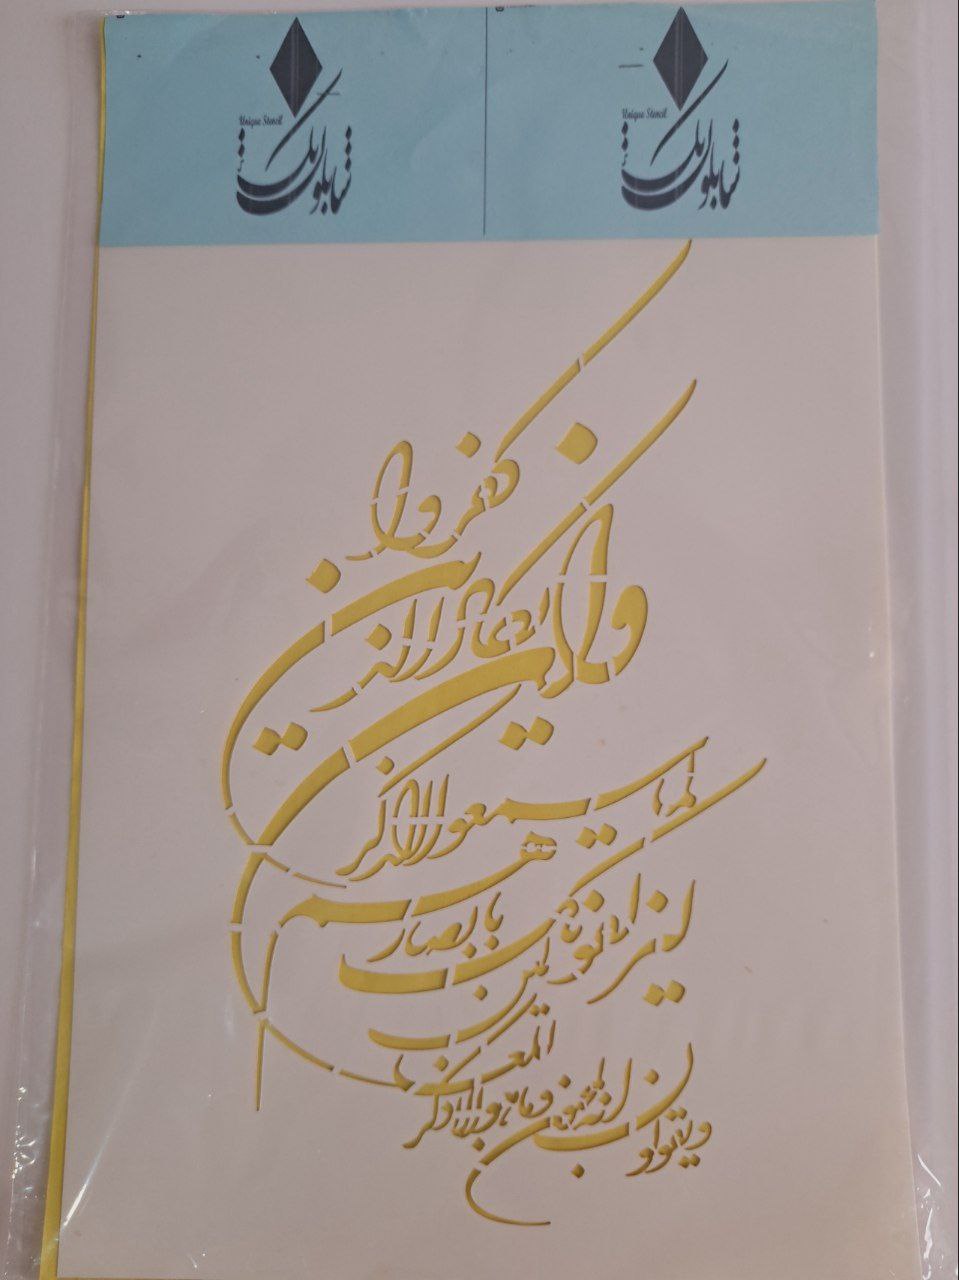 Unique Stencil
شابلون یونیک
Unique Stencil
شابلون یونیک
وان یکاد الذین کفروا
لیزلقونک بابصارهم
لما سمعوا الذکر
ویقولون انه لمجنون
وما هو الا ذکر
للعالمین